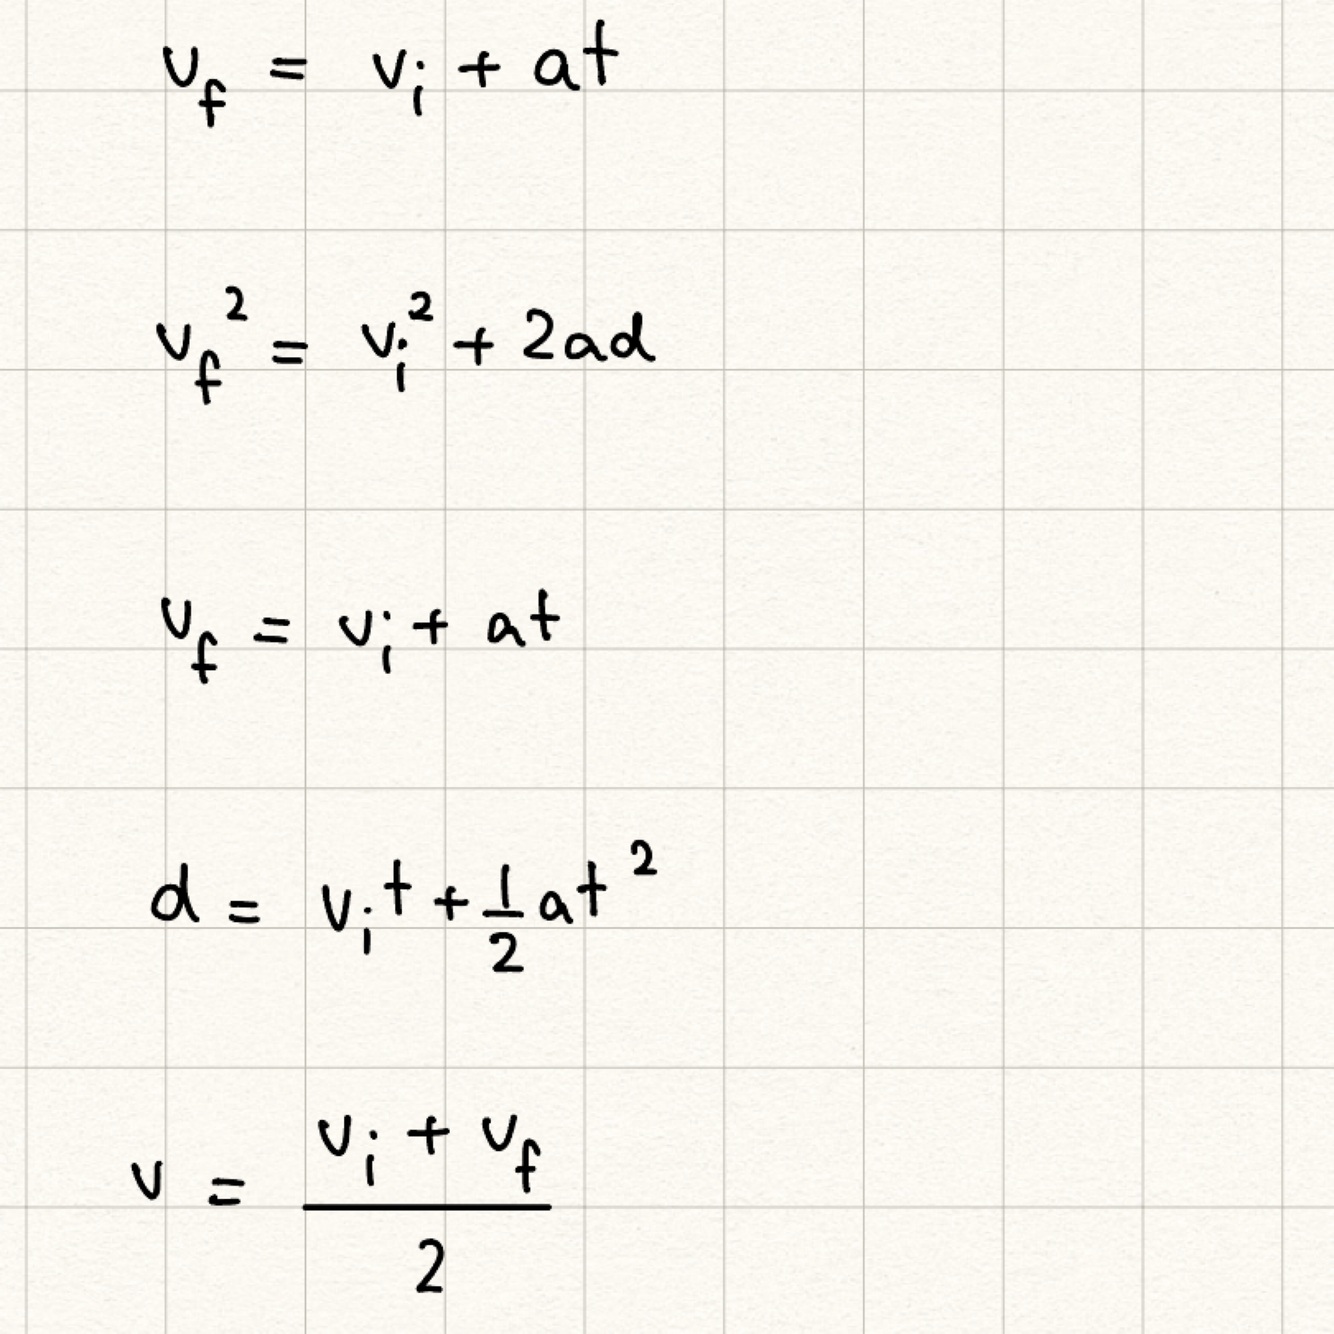 v_f = v_i + at
v_f² = v_i² + 2ad
v_f = v_i + at
d = v_i t + 1/2 at²
v = (v_i + v_f)/2